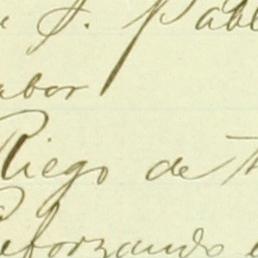 J. Pabl
abor
Riego de
eforzando